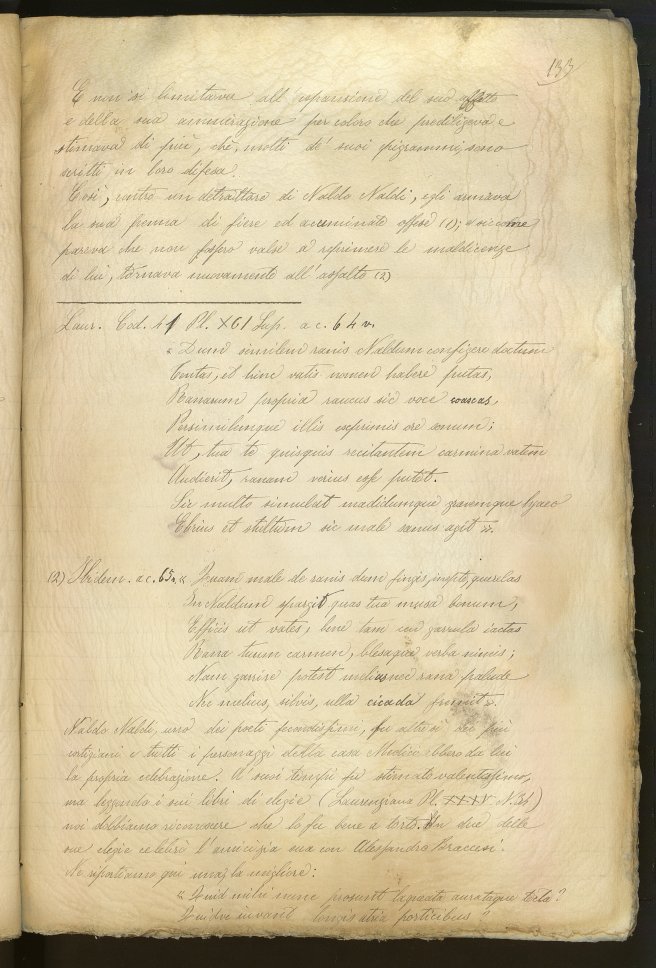 133
E non si limitava all'espansione del suo affetto
e della sua ammirazione per coloro che prediligeva e
stimava di più, chè, molti de' suoi epigrammi, sono
scritti in loro difesa.
Così, contro un detrattore di Naldo Naldi, egli armava
la sua penna di fiere ed acuminate offese (1); e siccome
pareva che non fossero valse a reprimere le maldicenze
di lui, tornava nuovamente all'assalto (2)
Laur. Cod. 41 Pl. XCI Sup. a c. 64 v.
"Dum similem ranis Naldum confizere doctum
Tentas, et hinc vatis nomen habere putas,
Ranarum propria raucus sic voce coaxas,
Persimilemque illis exprimis ore sonum;
Ut, tua te quisquis recitantem carmina vatem
Audierit, ranam verius esse putet.
Sic multo simulat madidumque gravemque lyaeo
Ebrius et stultum sic male sanus agit".
(2) Ibidem. a c. 65. "Quam male de ranis dum fingis, inepte, querelas
In Naldum spargit quas tua musa bonum;
Efficis ut vates, bene tam cui garrula iactas
Rana tuum carmen, blesaque verba nimis;
Nam garrire potest melius nec rana palude
Nec melius, silvis, ulla cicada fremit".
Naldo Naldi, uno dei poeti fecondissimi, fu altresì dei più
cortigiani e tutti i personaggi della casa Medici ebbero da lui
la propria celebrazione. A' suoi tempi fu stimato valentissimo,
ma leggendo i sui libri di elegie (Laurenziana Pl. XXXV. N. 34)
noi dobbiamo riconoscere che lo fu bene a torto. In due delle
sue elegie celebrò l'amicizia sua con Alessandro Braccesi
Ne riportiamo qui una, la migliore:
"Quid mihi nunc prosunt laqueata aurataque tecta?
Quidve iuvant longis atria porticibus?